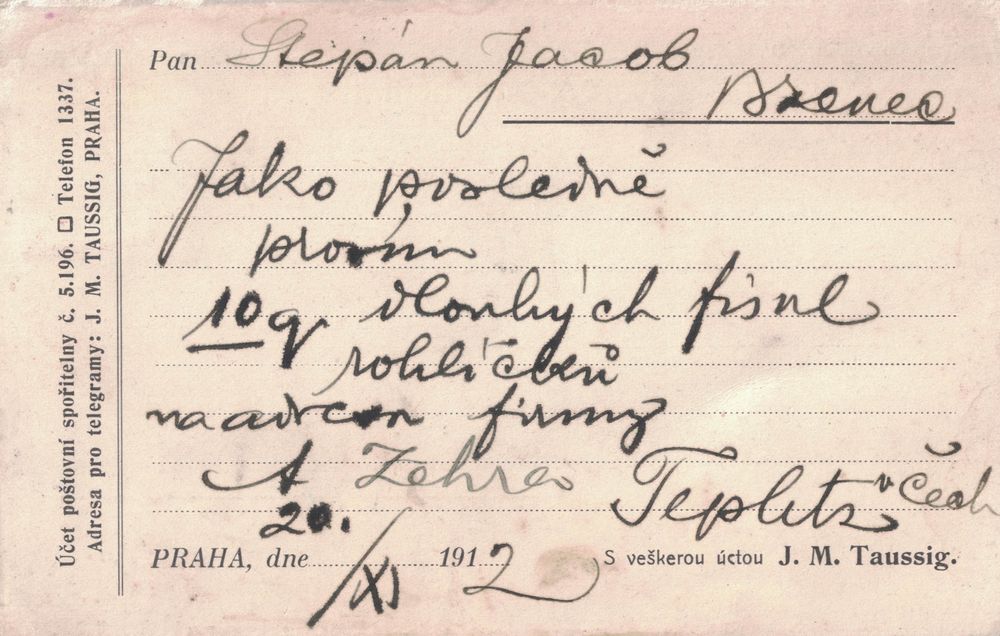 Účet poštovní spořitelny č. 5.196. □ Telefon 1337.
Adresa pro telegramy: J. M. TAUSSIG, PRAHA.
Pan Štěpán Jacob
Bzenec
Jako posledně
prosím
10 q dlouhých fisol
rohlíčků
na adresu firmy
A Zehra Teplitz v Čech
20./XI
PRAHA, dne 1912 S veškerou úctou J. M. Taussig.